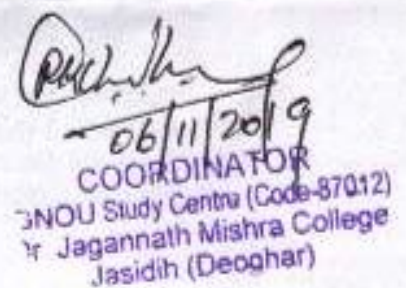 06/11/2019
COORDINATOR
GNOU Study Centre (Code-87012)
Dr Jagannath Mishra College
Jasidih (Deoghar)